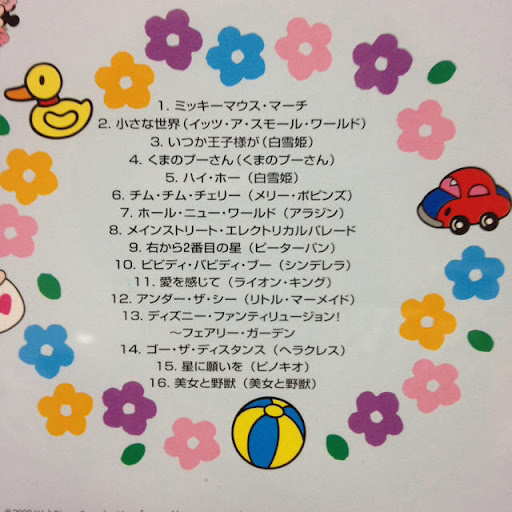 1. ミッキーマウス・マーチ
2. 小さな世界（イッツ・ア・スモール・ワールド）
3. いつか王子様が（白雪姫）
4. くまのプーさん（くまのプーさん）
5. ハイ・ホー（白雪姫）
6. チム・チム・チェリー（メリー・ポピンズ）
7. ホール・ニュー・ワールド（アラジン）
8. メインストリート・エレクトリカルパレード
9. 右から2番目の星（ピーターパン）
10. ビビディ・バビディ・ブー（シンデレラ）
11. 愛を感じて（ライオン・キング）
12. アンダー・ザ・シー（リトル・マーメイド）
13. ディズニー・ファンティリュージョン!
～フェアリー・ガーデン
14. ゴー・ザ・ディスタンス（ヘラクレス）
15. 星に願いを（ピノキオ）
16. 美女と野獣（美女と野獣）